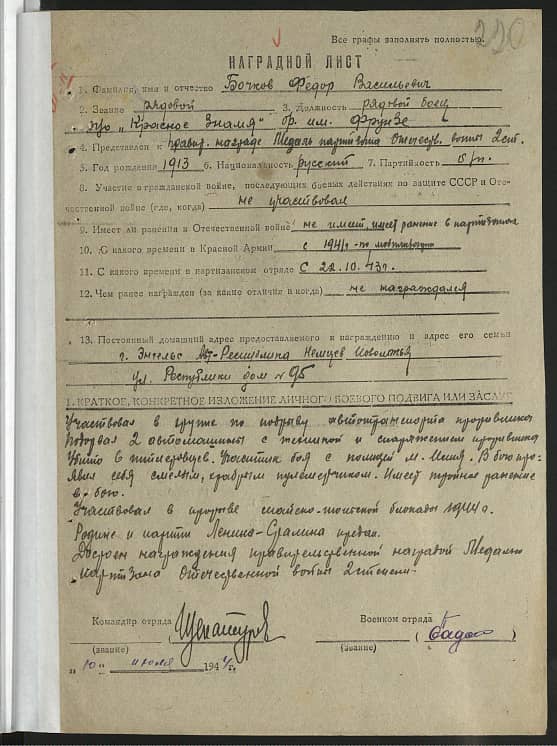 Все графы заполнять полностью.
220
НАГРАДНОЙ ЛИСТ
1. Фамилия, имя и отчество Бочков Фёдор Васильевич
2. Звание рядовой 3. Должность рядовой боец
п/о "Красное Знамя" бр. им. Фрунзе
4. Представлен к правит. награде Медаль партизана Отечеств. войны 2 ст.
5. Год рождения 1913 6. Национальность русский 7. Партийность б/п.
8. Участие в гражданской войне, последующих боевых действиях по защите СССР и Оте-
чественной войне (где, когда) не участвовал
9. Имеет ли ранения в Отечественной войне не имеет, имеет ранение в
10. С какого времени в Красной Армии с 1941г по мобилизации
11. С какого времени в партизанском отряде с 22.10.43г.
12. Чем ранее награжден (за какие отличия и когда) не награждался
13. Постоянный домашний адрес предоставляемого к награждению и адрес его семьи
г. Энгельс Авт-Республика Немцев Поволжья
ул. Республики дом № 95
1. КРАТКОЕ, КОНКРЕТНОЕ ИЗЛОЖЕНИЕ ЛИЧНОГО БОЕВОГО ПОДВИГА ИЛИ ЗАСЛУГ
Участвовал в группе по подрыву автотранспорта противника
Подорвал 2 автомашины с техникой и снаряжением противника
Убито 6 гитлеровцев. Участник боя с полицией м. Бою про-
явил себя смелым, храбрым пулеметчиком. Имеет ранение
в бою.
Участвовал в прорыве майско-июньской блокады 1944г.
Родине и партии Ленина-Сталина предан.
Достоин награждения правительственной наградой Медалью
партизана Отечественной войны 2 степени.
Командир отряда
Военком отряда
(звание)
(звание)
"10" июля 1944г.